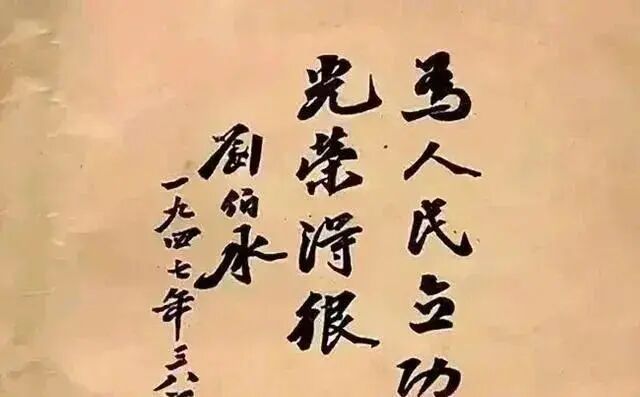 為人民立功
光榮得很
劉伯承
一九四七年三八